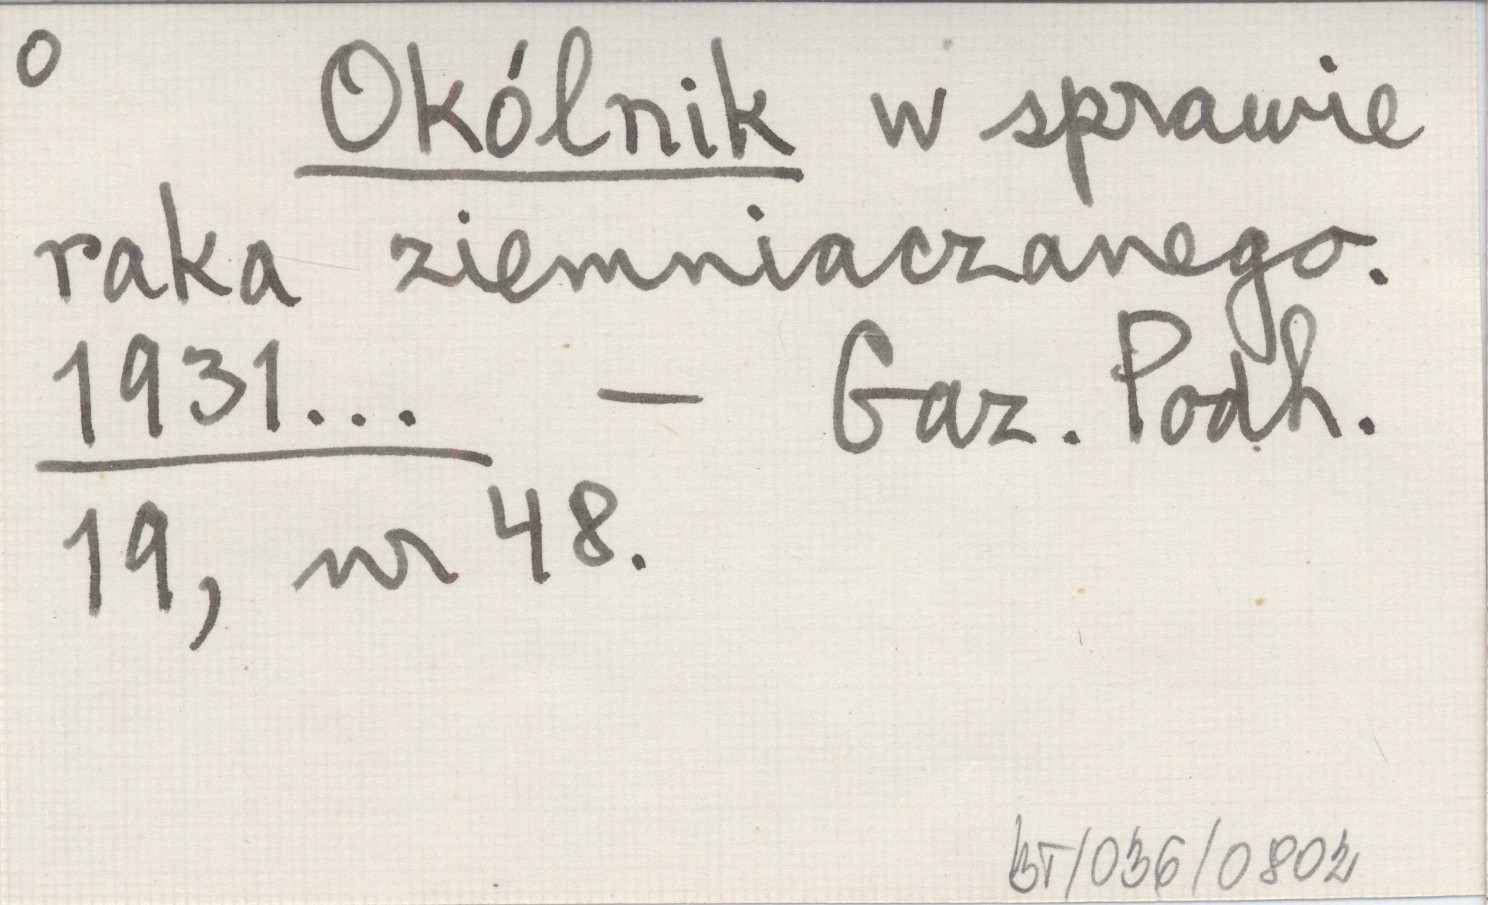 O Okólnik w sprawie
raka ziemniaczanego.
1931... – Gaz. Podh.
19, nr 48.
BT/036/0802